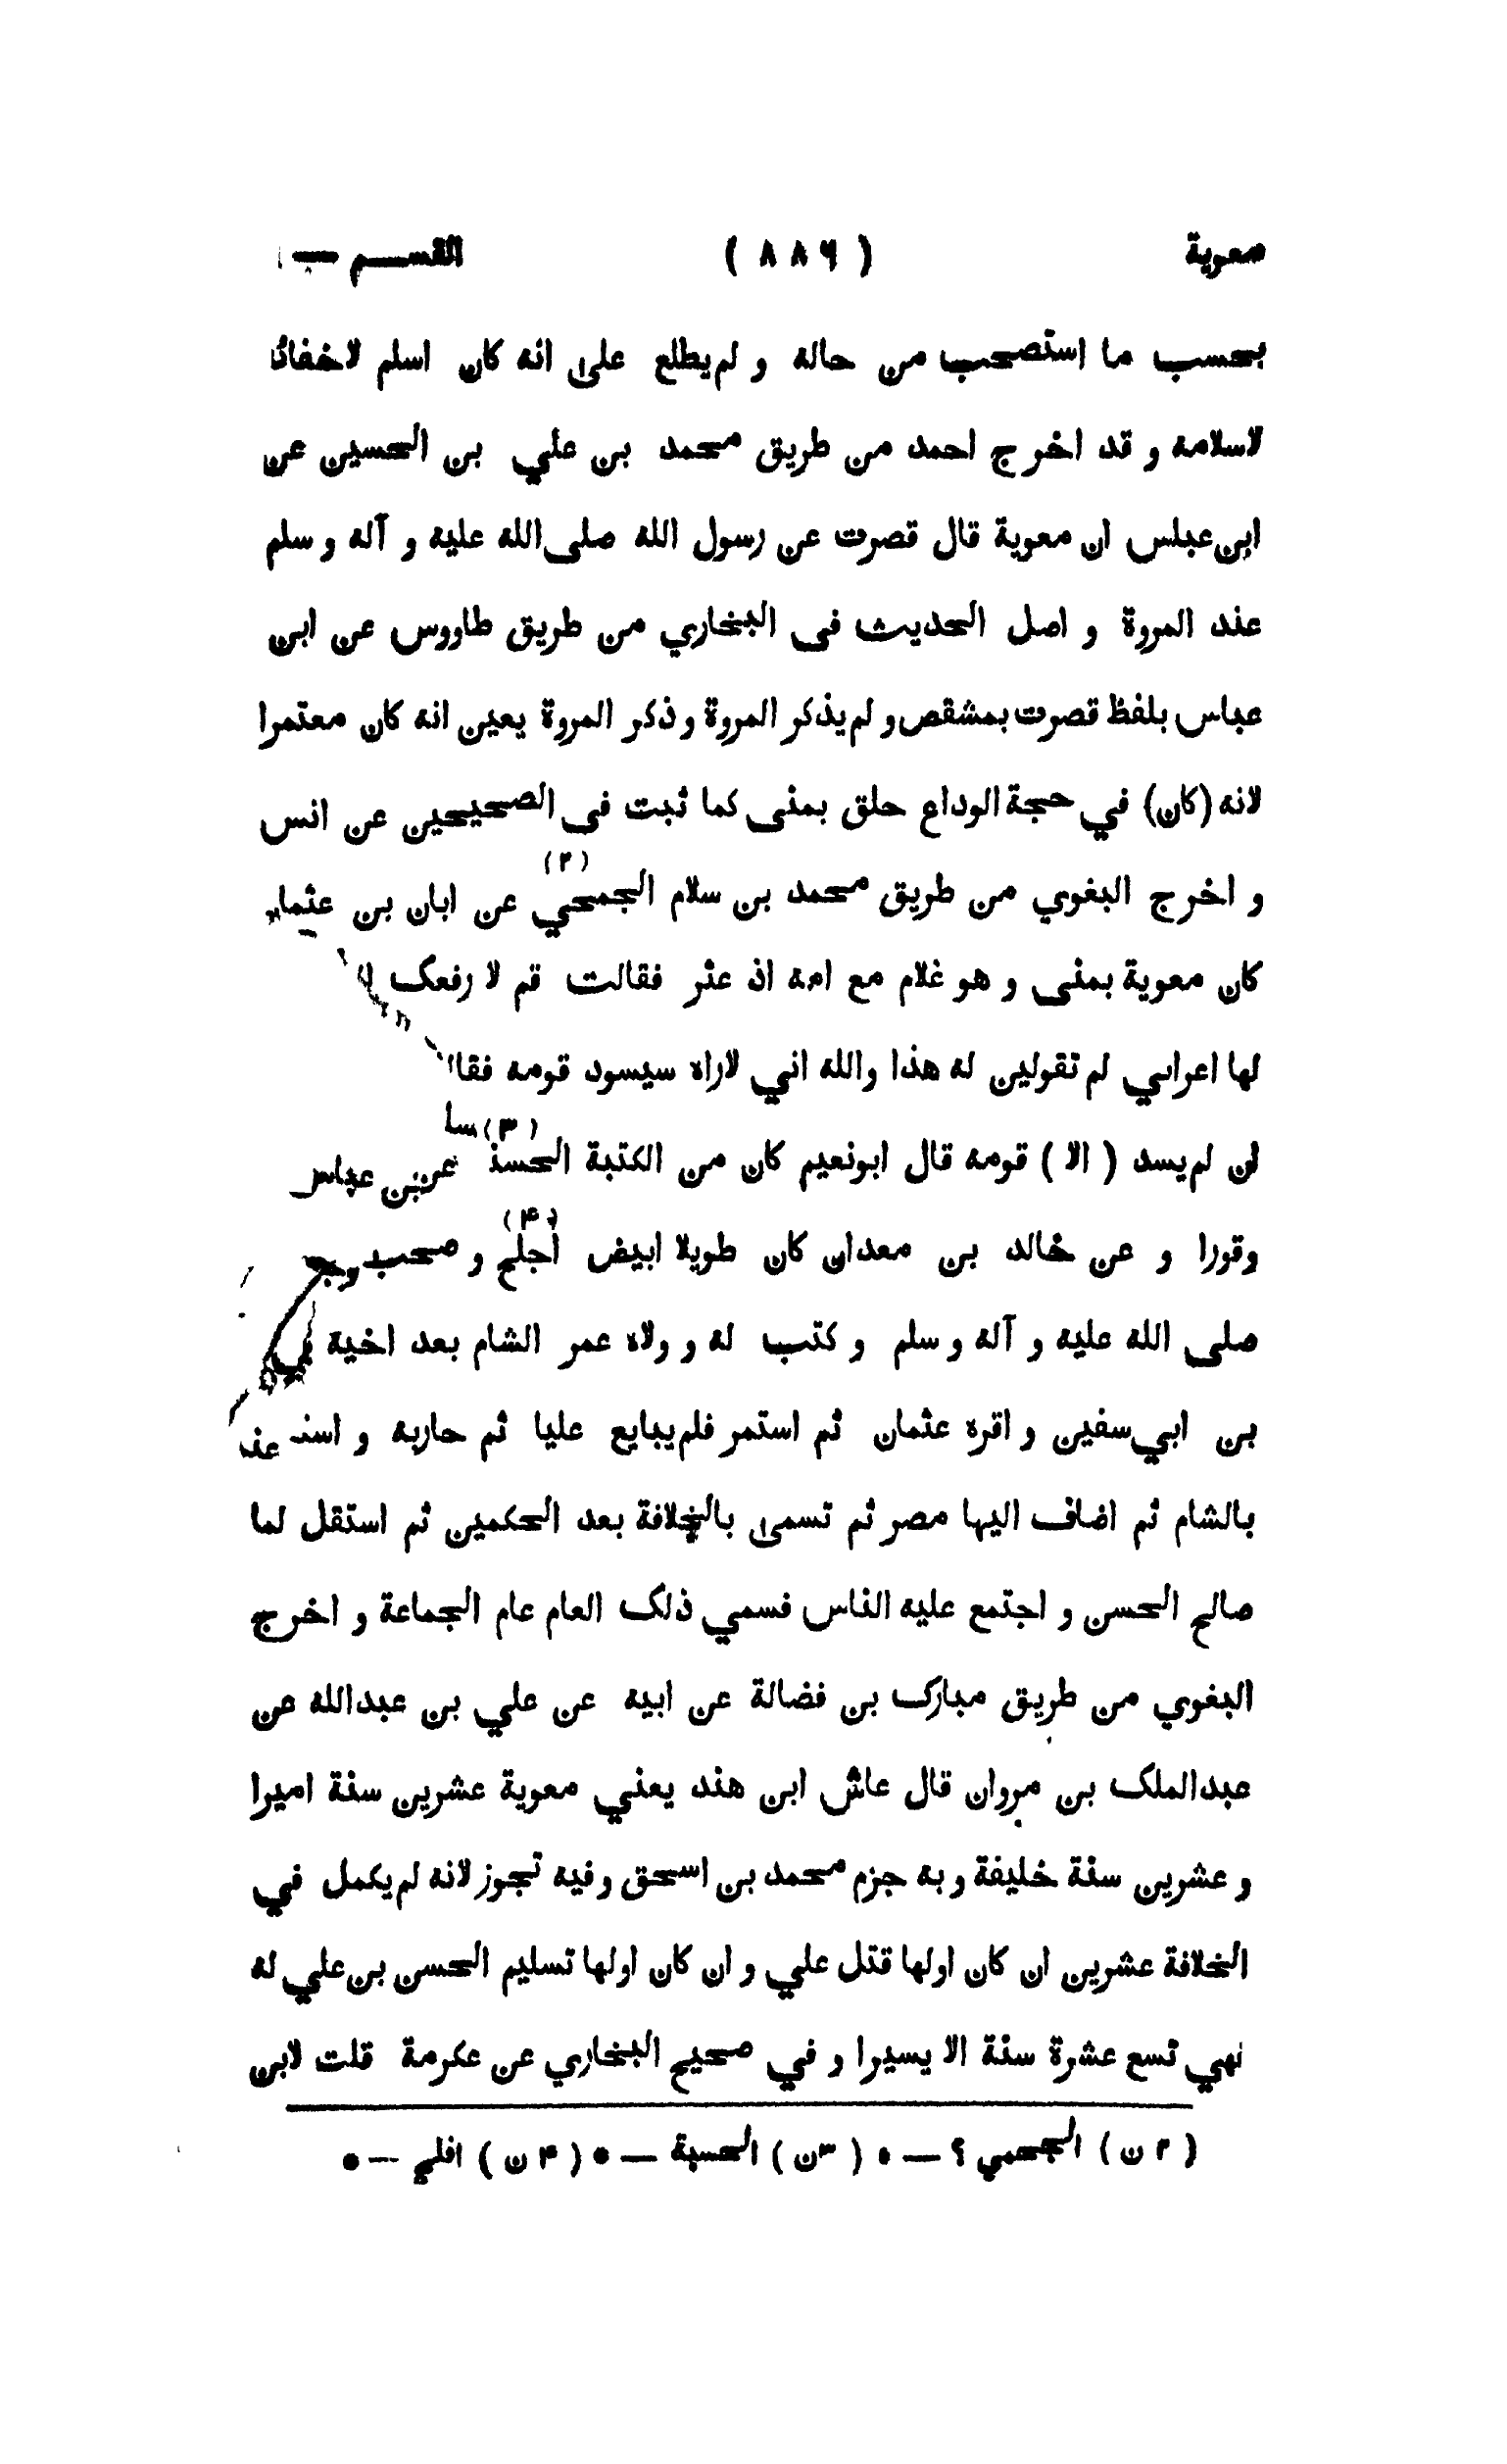 معوية ( ٨٨٦ ) القسم
بحسب ما استصحب من حاله و لم يطلع على انه كان اسلم لاخفائه
لاسلامه و قد اخرج احمد من طريق محمد بن علي بن الحسين عن
ابن عباس ان معوية قال قصرت عن رسول الله صلى الله عليه و آله و سلم
عند المروة و اصل الحديث فى البخاري من طريق طاووس عن ابن
عباس بلفظ قصرت بمشقص و لم يذكر المروة و ذكر المروة يعين انه كان معتمرا
لانه (كان) في حجة الوداع حلق بمنى كما ثبت فى الصحيحين عن انس
و اخرج البغوي من طريق محمد بن سلام الجمحي (٢) عن ابان بن عثمان
كان معوية بمنى و هو غلام مع امه اذ عثر فقالت قم لا رفعك
لها اعرابي لم تقولين له هذا والله اني لاراه سيسود قومه
ان لم يسد ( الا ) قومه قال ابونعيم كان من الكتبة (٣)
وقورا و عن خالد بن معدان كان طويلا ابيض اجلح (۴) و صحب
صلى الله عليه و آله و سلم و كتب له و ولاه عمر الشام بعد اخيه
بن ابي سفين و اقره عثمان ثم استمر فلم يبايع عليا ثم حاربه و
بالشام ثم اضاف اليها مصر ثم تسمى بالخلافة بعد الحكمين ثم استقل لما
صالح الحسن و اجتمع عليه الناس فسمي ذلك العام عام الجماعة و اخرج
البغوي من طريق مبارك بن فضالة عن ابيه عن علي بن عبدالله عن
عبدالملك بن مروان قال عاش ابن هند يعني معوية عشرين سنة اميرا
و عشرين سنة خليفة و به جزم محمد بن اسحق و فيه تجوز لانه لم يكمل في
الخلافة عشرين ان كان اولها قتل علي و ان كان اولها تسليم الحسن بن علي له
فهي تسع عشرة سنة الا يسيرا و في صحيح البخاري عن عكرمة قلت لابن
( ٢ ن ) الجحمي ؟ — • ( ٣ ن ) الحسبة — • ( ۴ ن ) افلح — •